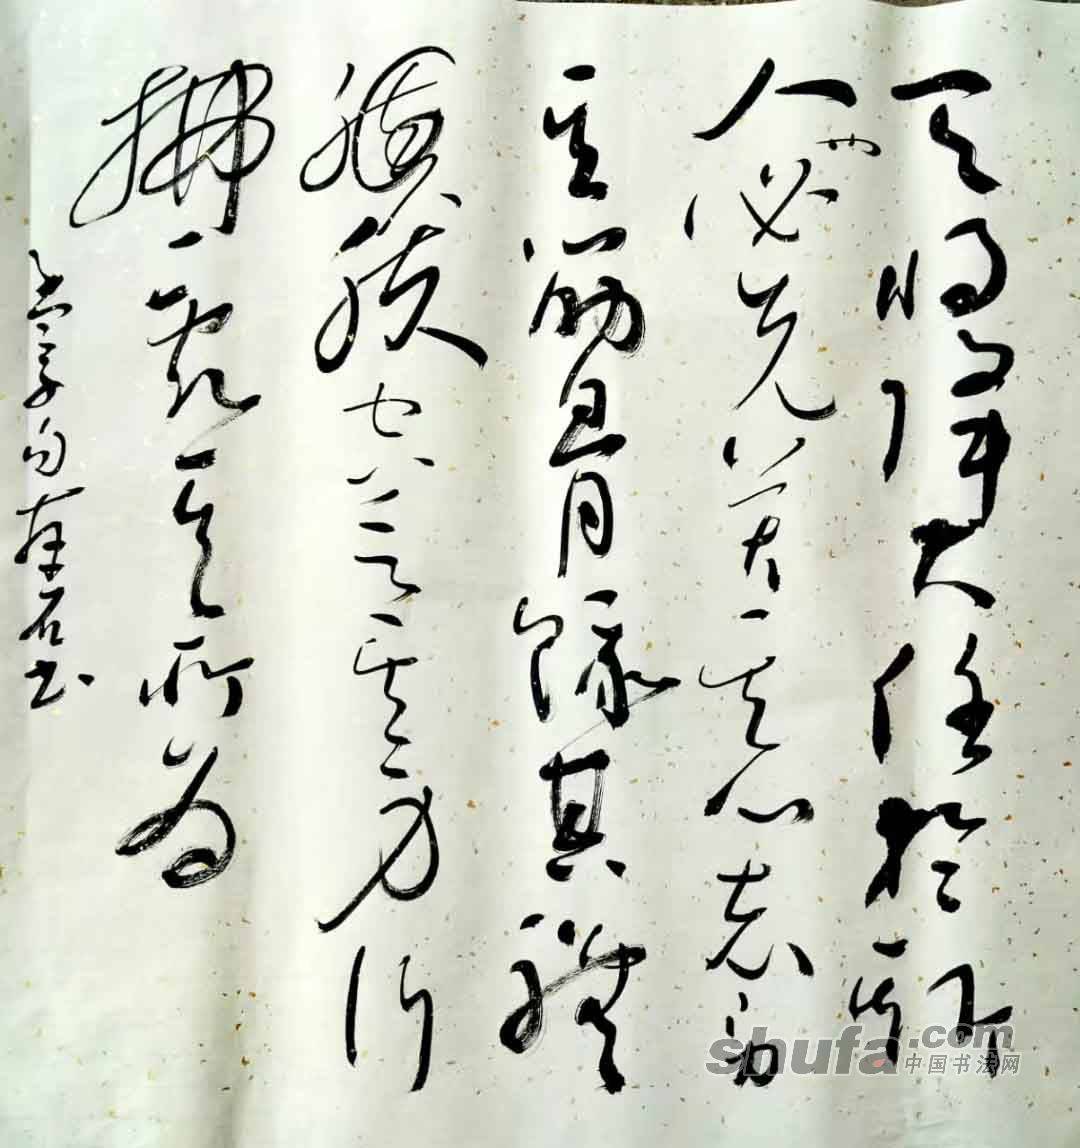 天将降大任於斯
人也必先苦其心志劳
其筋骨餓其體
肤空乏其身行
拂乱其所为
孟子句石书
shufa.com
中国书法网